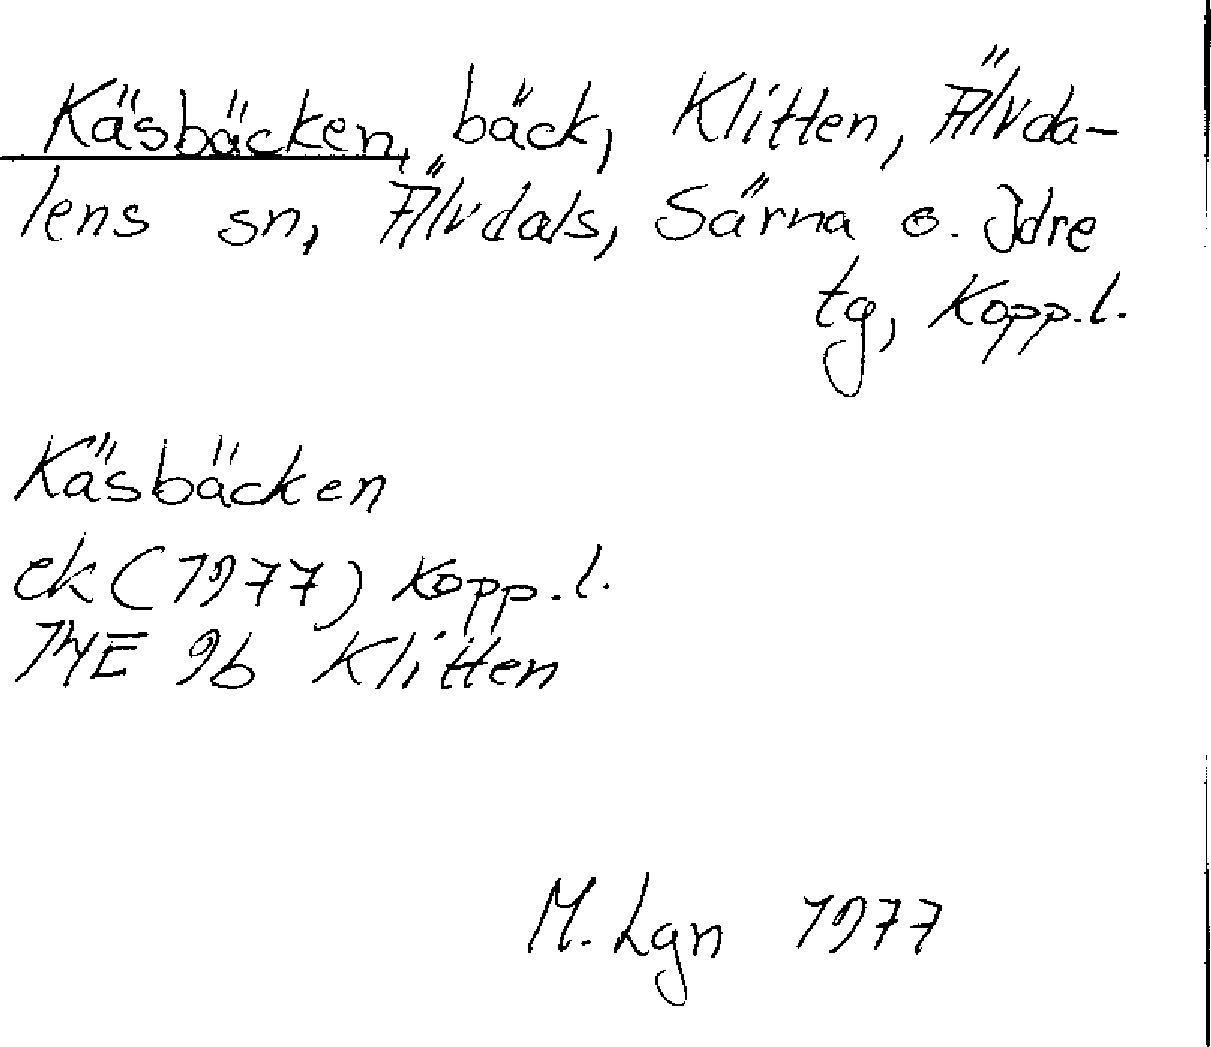 Käsbäcken, bäck, Klitten, Älvda-
lens sn, Älvdals, Särna o. Idre
tg, Kopp.l.
Käsbäcken
ek (1977) Kopp.l.
14E 9b Klitten
M. Lgn 1977